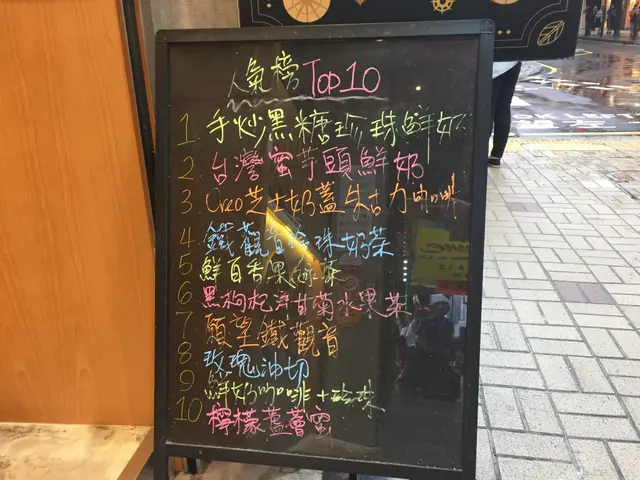 人氣榜 Top 10
1. 手炒黑糖珍珠鮮奶
2. 台灣蜜芋頭鮮奶
3. Oreo芝士奶蓋朱古力咖啡
4. 鐵觀音珍珠奶茶
5 鮮百香果綠茶
6 黑枸杞洋甘菊水果茶
7 願望鐵觀音
8 玫瑰油切
9 鮮奶咖啡+珍珠
10 檸檬蘆薈蜜